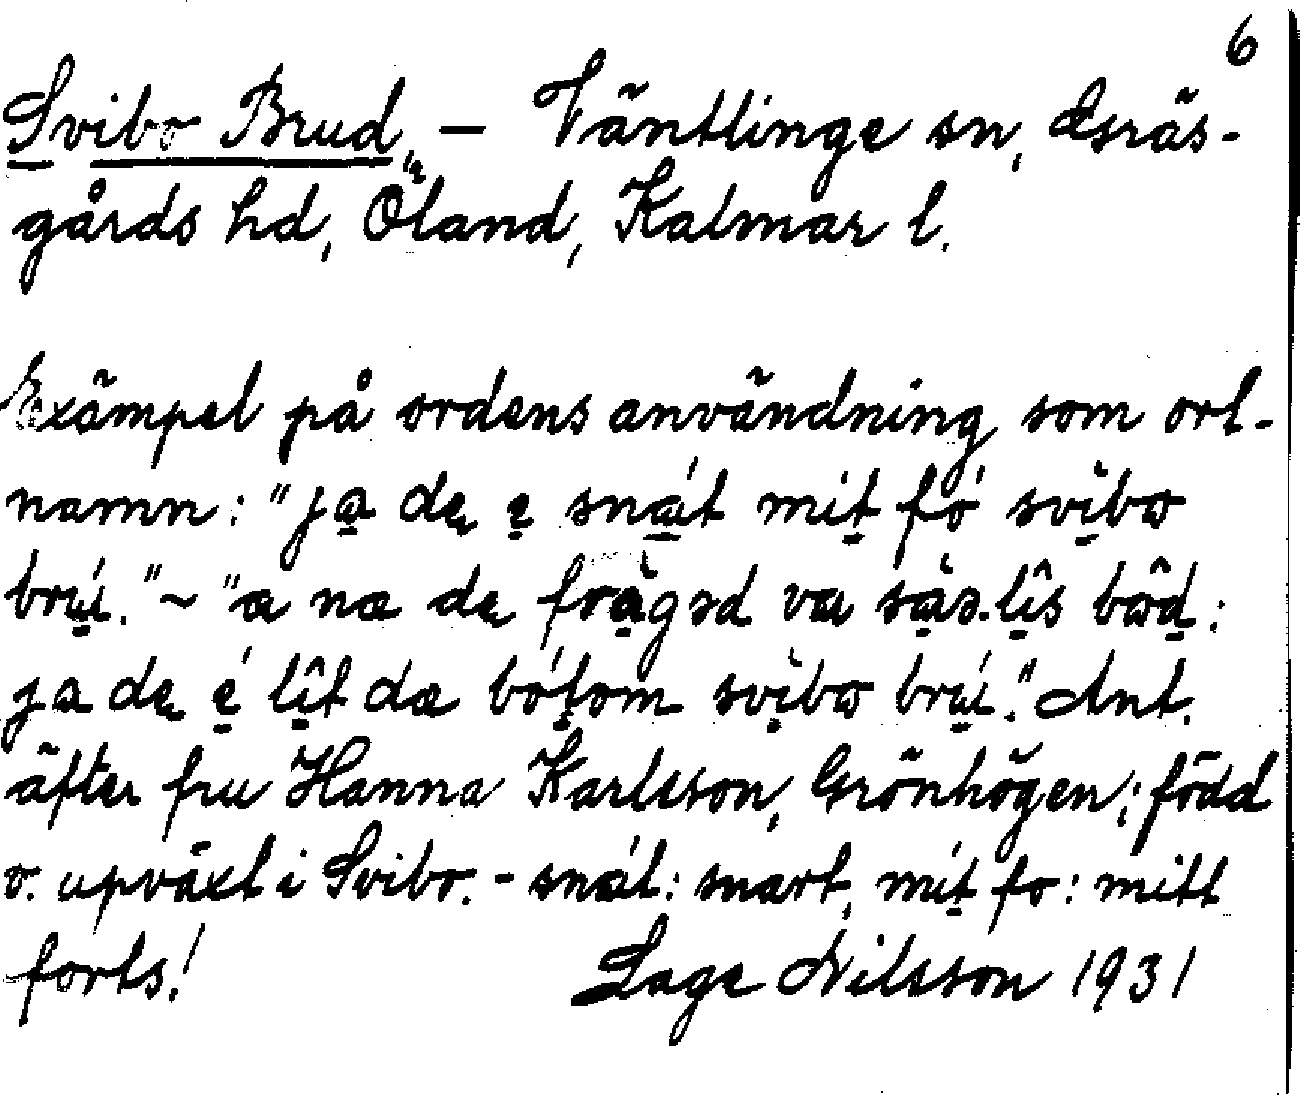 6
Svibo Brud, — Väntlinge sn, Gräs-
gårds hd, Öland, Kalmar l.
Exämpel på ordens användning som ort-
namn: "ja de e snát mit fó svìbo
brú." ~ "a na de frågəd va sàs.lîs bôd:
ja de é lît da bótom svìbo brú." Ant.
äfter fru Hanna Karlsson, Grönhögen; född
o. upväxt i Svibo. - snát: snart, mít fo: mitt
forts! Lage Nilsson 1931